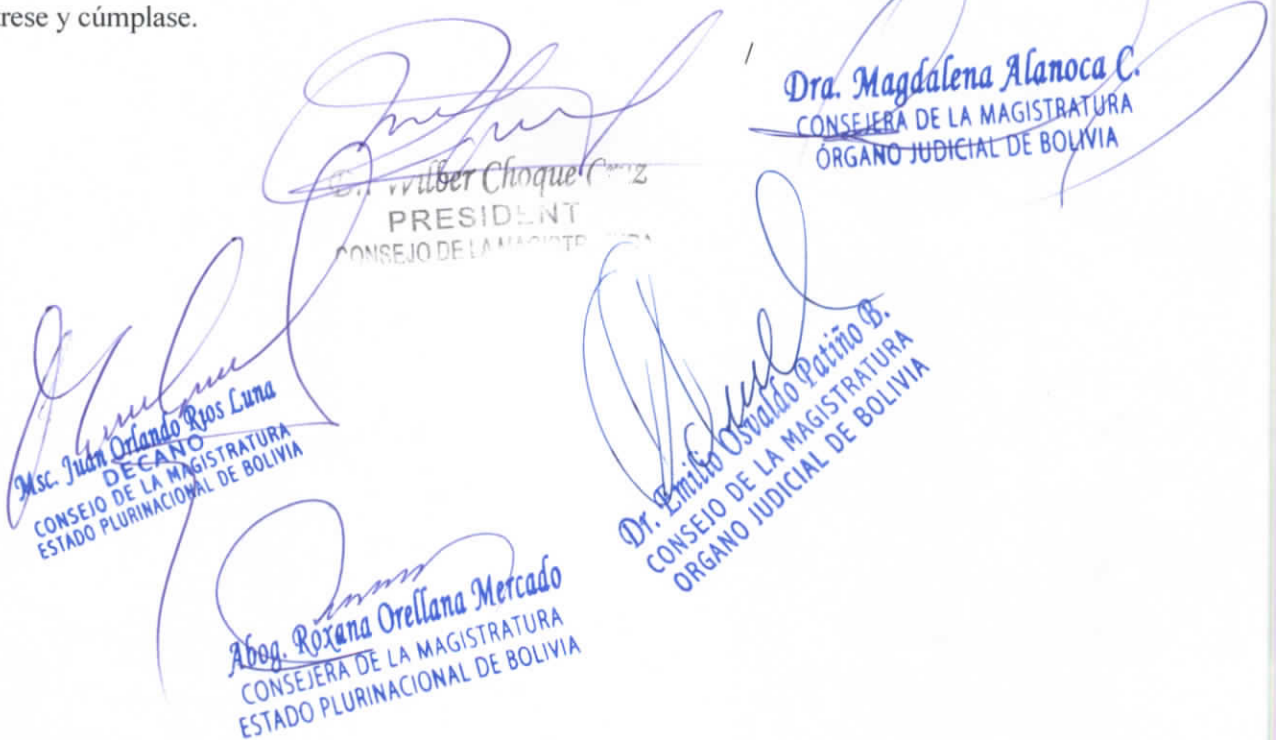 rese y cúmplase.
Dra. Magdalena Alanoca C.
CONSEJERA DE LA MAGISTRATURA
ÓRGANO JUDICIAL DE BOLIVIA
Wilber Choque
PRESIDENT
CONSEJO DE LA
Msc. Juan Orlando Rios Luna
DECANO
CONSEJO DE LA MAGISTRATURA
ESTADO PLURINACIONAL DE BOLIVIA
Dr. Emilio Osvaldo Patiño B.
CONSEJO DE LA MAGISTRATURA
ORGANO JUDICIAL DE BOLIVIA
Abog. Roxana Orellana Mercado
CONSEJERA DE LA MAGISTRATURA
ESTADO PLURINACIONAL DE BOLIVIA